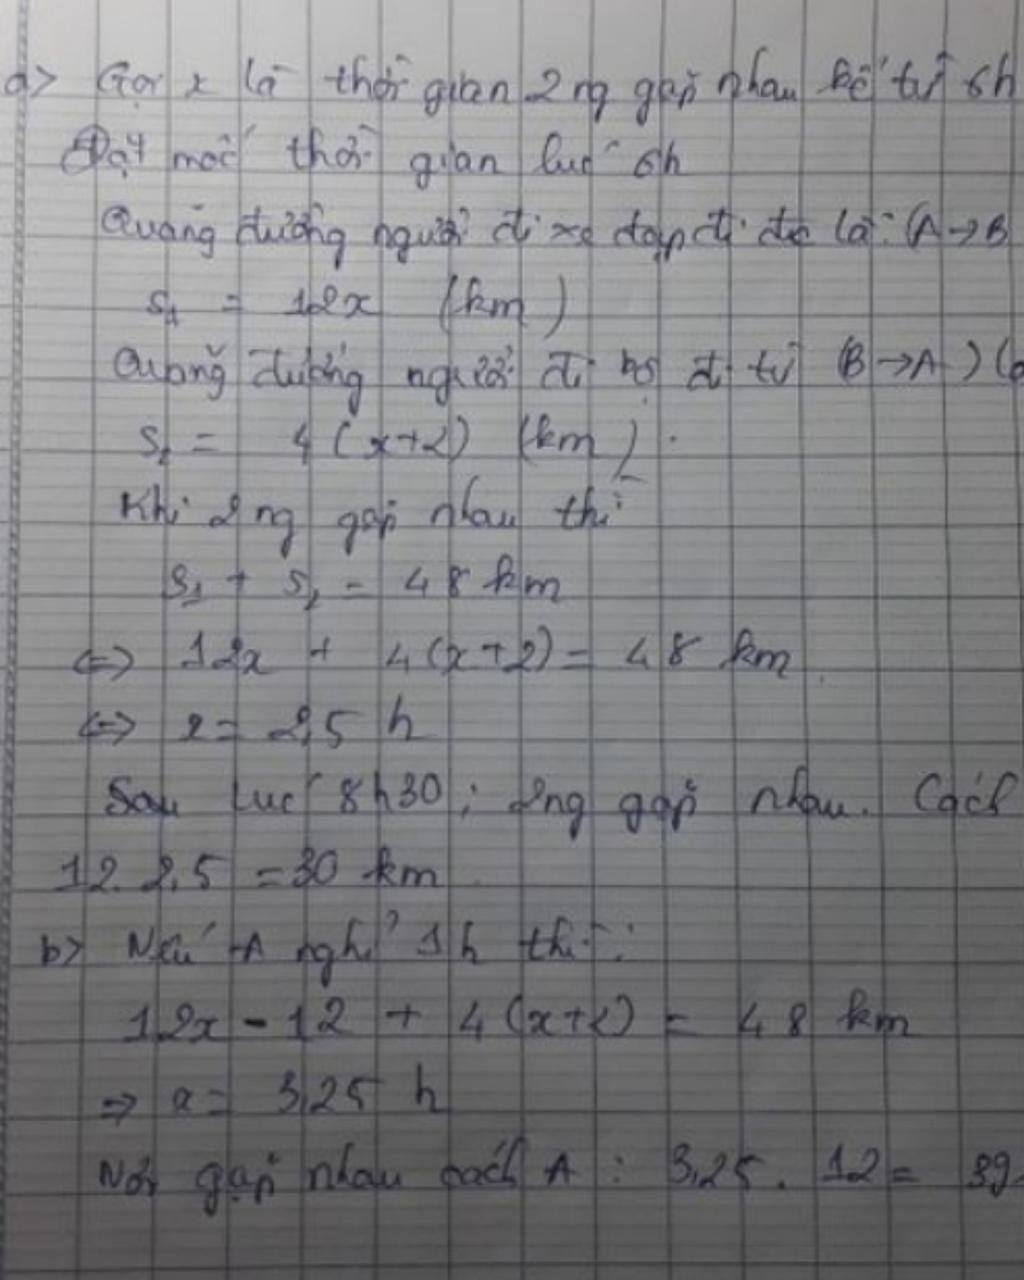 a> Gọi x là thời gian 2 ng gặp nhau kể từ 6h
Đặt mốc thời gian lúc 6h
Quãng đường người đi xe đạp đi đc là: (A→B
S1 = 12x (km)
Quãng đường người đi bộ đi từ (B→A) (
S2 = 4(x+2) (km).
Khi 2 ng gặp nhau thì
S1 + S2 = 48 km
<=> 12x + 4(x+2) = 48 km
<=> x = 2,5 h
Sau lúc 8h30; 2ng gặp nhau. Cách
12. 2,5 = 30 km
b> Nếu A nghỉ 1h thì:
12x - 12 + 4(x+2) = 48 km
=> x = 3,25 h
Nơi gặp nhau cách A: 3,25. 12 = 39